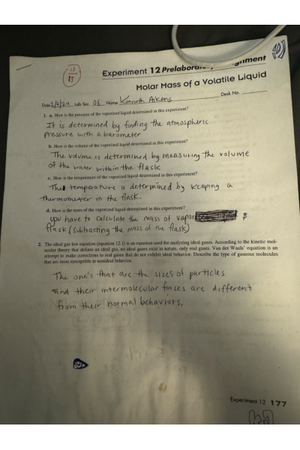 Experiment 12 Prelaboratory Assignment
Molar Mass of a Volatile Liquid
Date Lab Sec. 06 Name Desk No.
1. a. How is the pressure of the vaporized liquid determined in this experiment?
It is determined by finding the atmospheric
pressure with a barometer
b. How is the volume of the vaporized liquid determined in this experiment?
The volume is determined by measuring the volume
of the water within the flask
c. How is the temperature of the vaporized liquid determined in this experiment?
The temperature is determined by keeping a
thermometer in the flask.
d. How is the mass of the vaporized liquid determined in this experiment?
you have to calculate the mass of vapor
flask (subtracting the mass of the flask)
2. The ideal gas law equation (equation 12.1) is an equation used for analyzing ideal gases. According to the kinetic mol-
ecular theory that defines an ideal gas, no ideal gases exist in nature, only real gases. Van der Waals' equation is an
attempt to make corrections to real gases that do not exhibit ideal behavior. Describe the type of gaseous molecules
that are most susceptible to nonideal behavior.
The one's that are the sizes of particles
and their intermolecular forces are different
from their normal behaviors.
Experiment 12 177